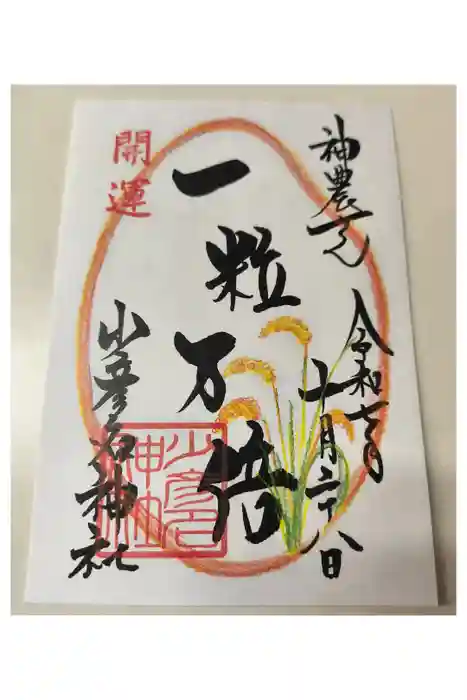 神農さん
令和七年
一月二十八日
一粒万倍
開運
少彦名神社
少彦名
神社